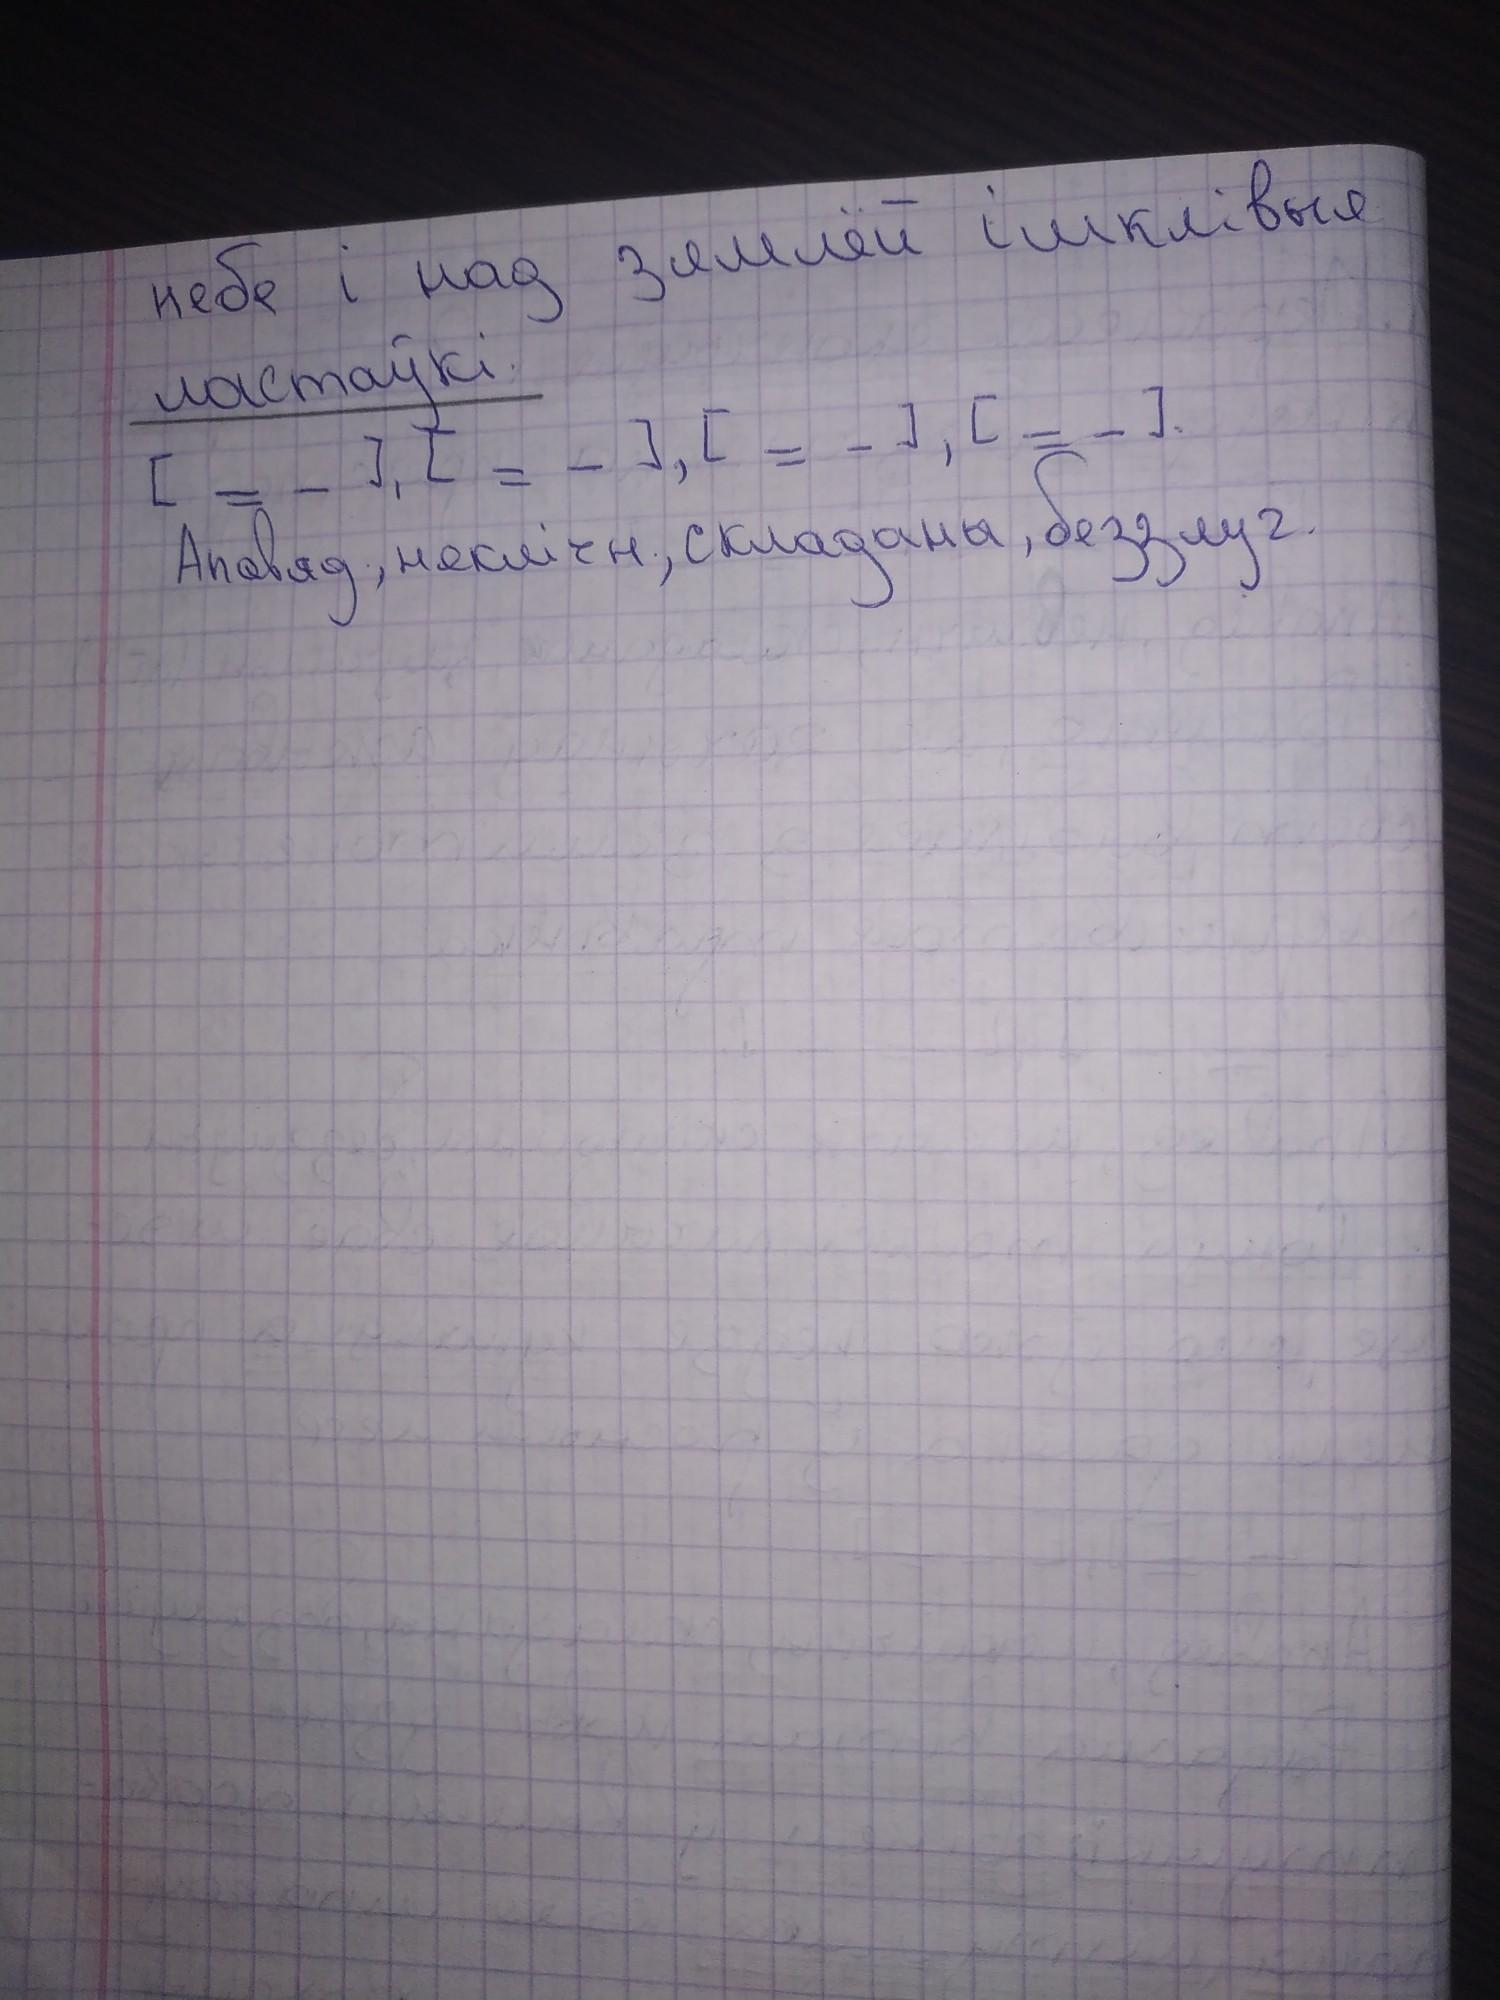 небе і над зямлёй імклівыя
ластаўкі.
[ = - ], [ = - ], [ = - ], [ = - ].
Апавяд., няклічн., складаны, беззлуч.